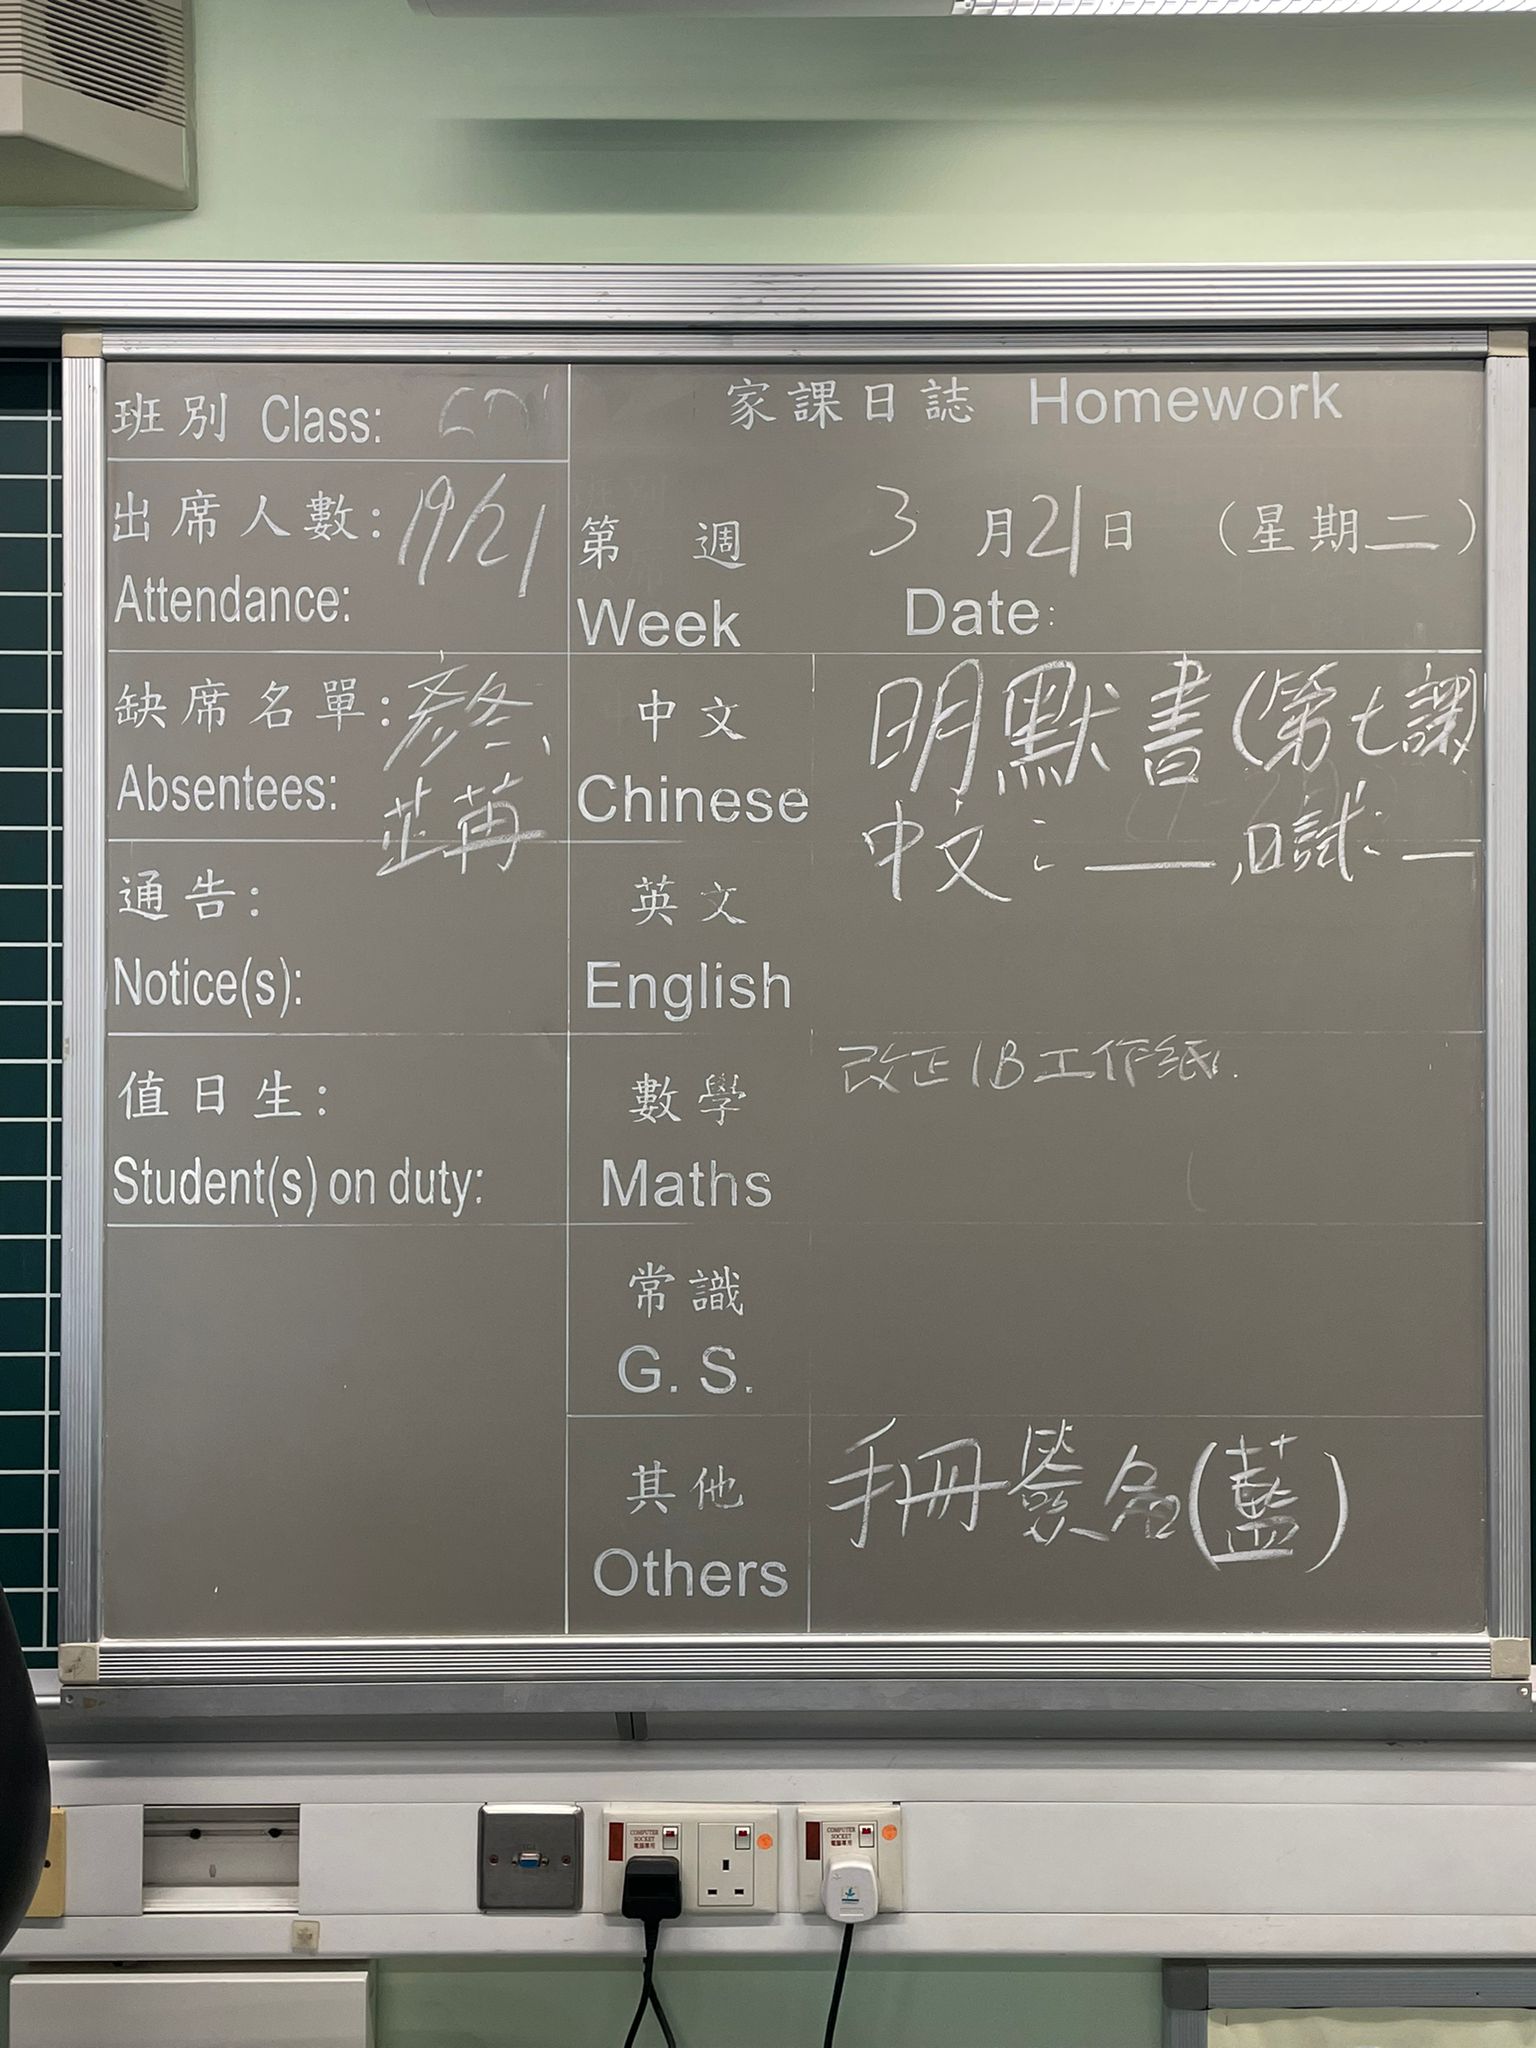 班別 Class:
家課日誌 Homework
出席人數: 19/21
Attendance:
第 週 3 月 21 日 (星期二)
Week Date:
缺席名單:
Absentees: 芷苒
中文 明默書(第七課)
Chinese 中文:__,口試:__
通告:
Notice(s):
英文
English
值日生:
Student(s) on duty:
數學 改正1B工作紙.
Maths
常識
G. S.
其他 手冊簽名(藍)
Others
COMPUTER
SOCKET
電腦專用
COMPUTER
SOCKET
電腦專用